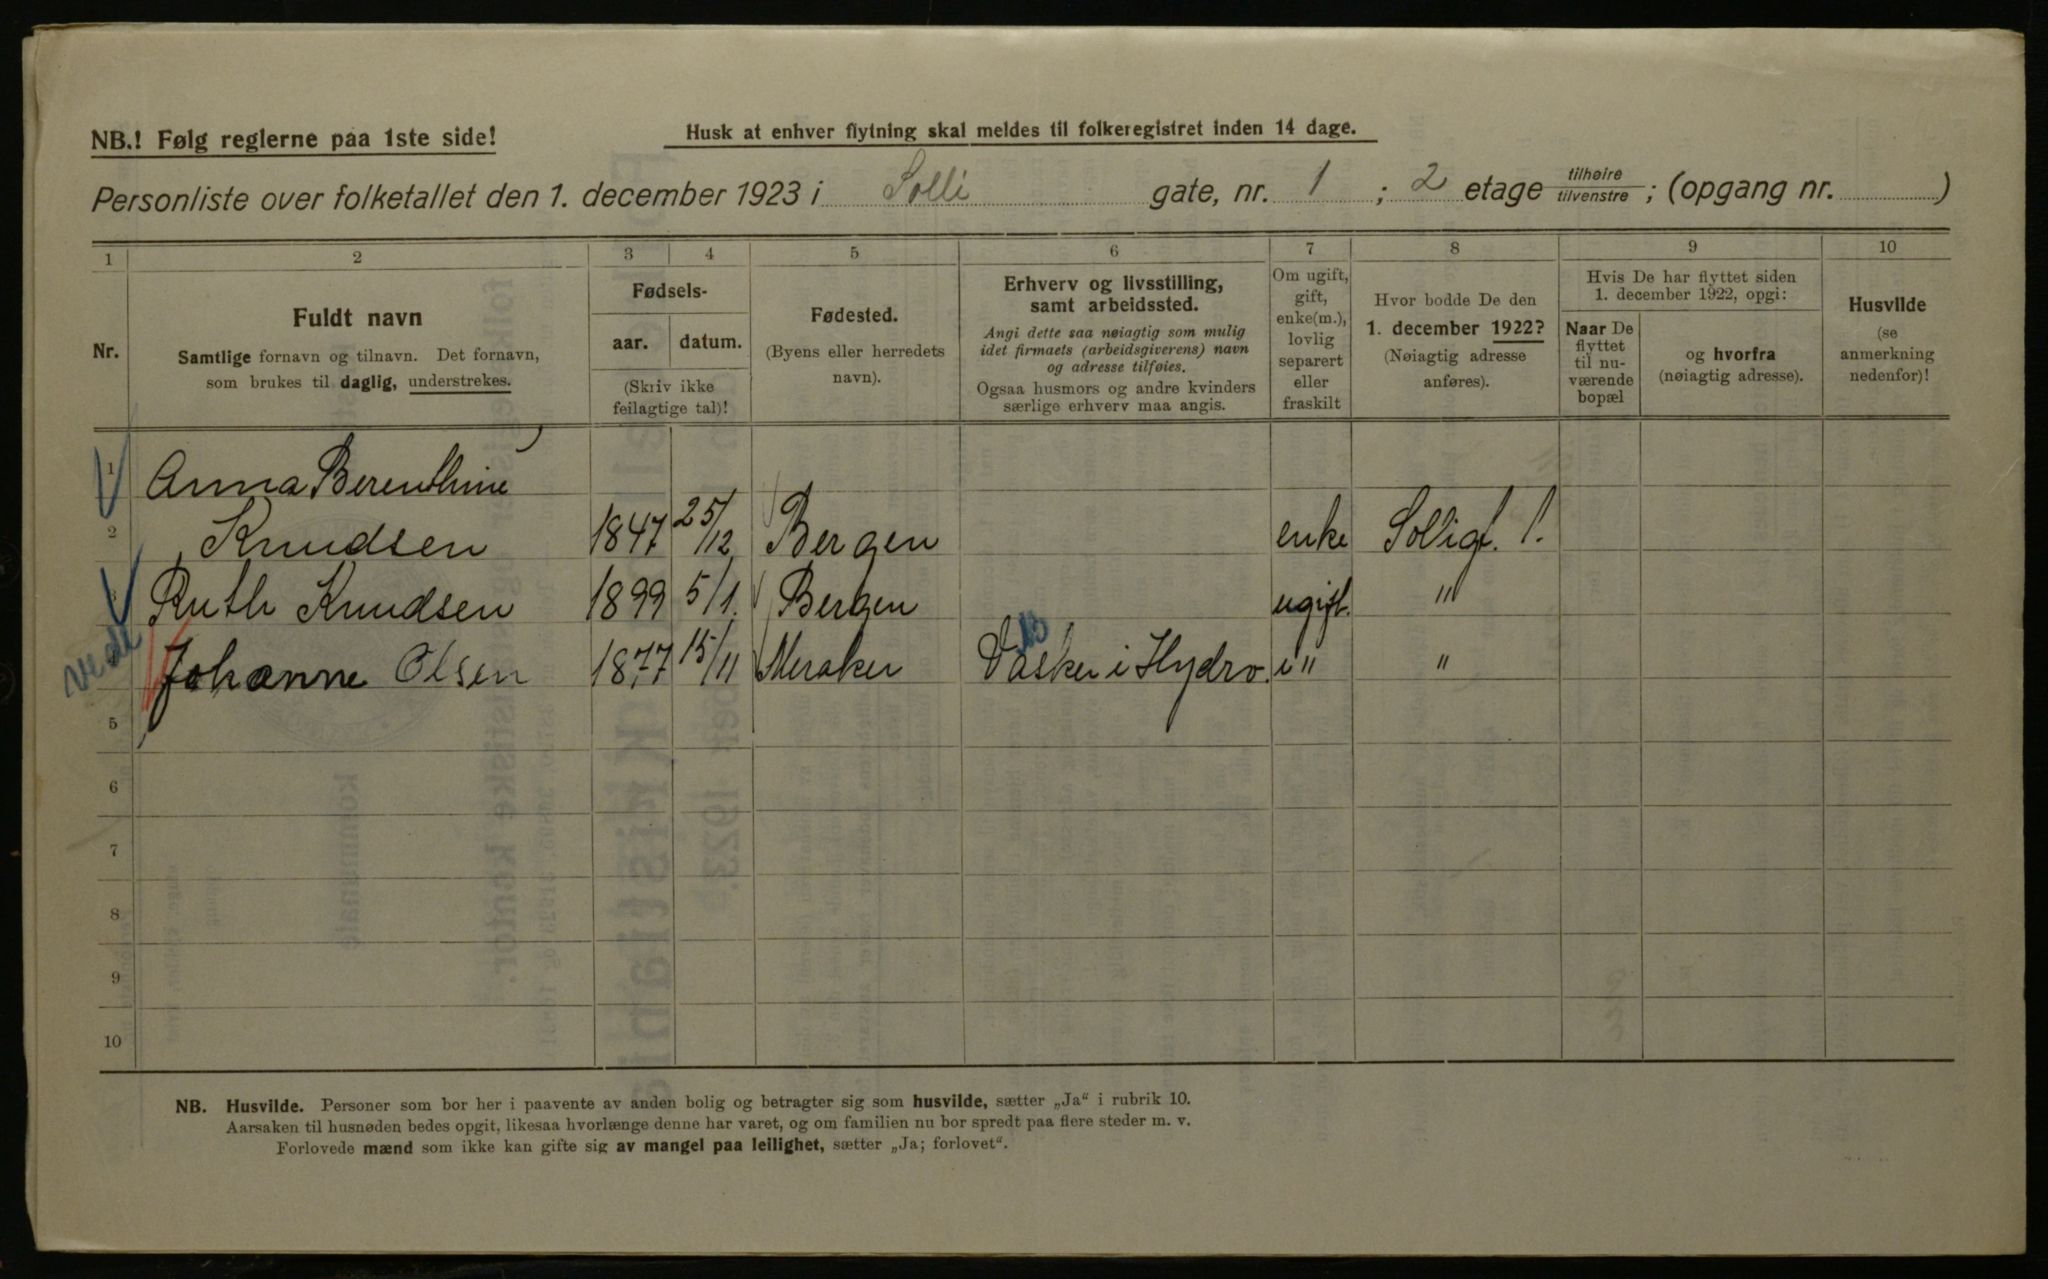 NB.! Følg reglerne paa 1ste side!
Husk at enhver flytning skal meldes til folkeregistret inden 14 dage.
Personliste over folketallet den 1. december 1923 i Solli gate, nr. 1 ; 2 etage tilhøire tilvenstre ; (opgang nr. )
1 2 3 4 5 6 7 8 9 10
Nr.
Fuldt navn
Samtlige fornavn og tilnavn. Det fornavn,
som brukes til daglig, understrekes.
Fødsels-
aar. datum.
(Skriv ikke
feilagtige tal)!
Fødested.
(Byens eller herredets
navn).
Erhverv og livsstilling,
samt arbeidssted.
Angi dette saa nøiagtig som mulig
idet firmaets (arbeidsgiverens) navn
og adresse tilføies.
Ogsaa husmors og andre kvinders
særlige erhverv maa angis.
Om ugift,
gift,
enke(m.),
lovlig
separert
eller
fraskilt
Hvor bodde De den
1. december 1922?
(Nøiagtig adresse
anføres).
Hvis De har flyttet siden
1. december 1922, opgi:
Naar De
flyttet
til nu-
værende
bopæl
og hvorfra
(nøiagtig adresse).
Husvilde
(se
anmerkning
nedenfor)!
1 Anna Berenthine
2 Knudsen 1847 25/12 Bergen enke Solligt. 1.
3 Ruth Knudsen 1899 5/1. Bergen ugift. "
4 Johanne Olsen 1877 15/11 Meraker Vasker i Hydro. " "
5
6
7
8
9
10
NB. Husvilde. Personer som bor her i paavente av anden bolig og betragter sig som husvilde, sætter „Ja“ i rubrik 10.
Aarsaken til husnøden bedes opgit, likesaa hvorlænge denne har varet, og om familien nu bor spredt paa flere steder m. v.
Forlovede mænd som ikke kan gifte sig av mangel paa leilighet, sætter „Ja; forlovet“.